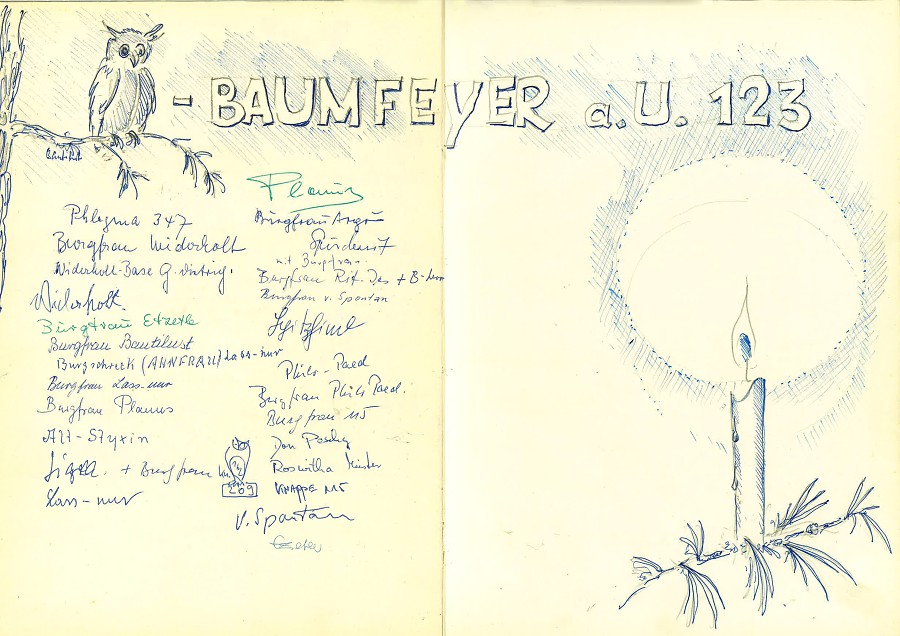 - BAUMFEYER a.U. 123
Phlegma 347
Burgfrau Widerholt
Widerholt-Base G.
Widerholt.
Burgfrau Etzerle
Burgfrau Bautilust
Burgschreck (AHNFRAU) Lass-nur
Burgfrau Lass-nur
Burgfrau Planus
Alt-Styxin
+ Burgfrau
Lass-nur
Planus
Burgfrau Argus
mit Burgfrau
Burgfrau Rit. Des + B-
Burgfrau v. Spontan
Spitzfinl
Philo-Paed
Burgfrau Philo Paed.
Burgfrau M5
Don Pascha
Roswitha Meister
KNAPPE M5
12
269
v. Spontan